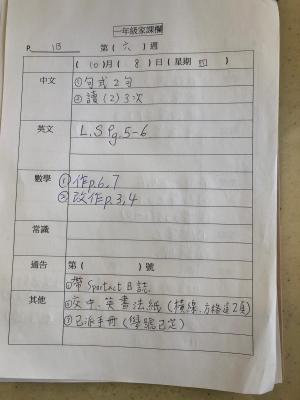 一年級家課欄
P. 1B 第（六）週
（10）月（8）日（星期 四）
中文 ①句式2句
②讀(2)3次
英文 L.S Pg.5-6
數學 ①作p.6,7
②改作p.3,4
常識
通告 第（ ）號
①帶Sportact日誌
其他 ②交中、英書法紙(橫線、方格各2頁)
③已派手冊(學號已芝)